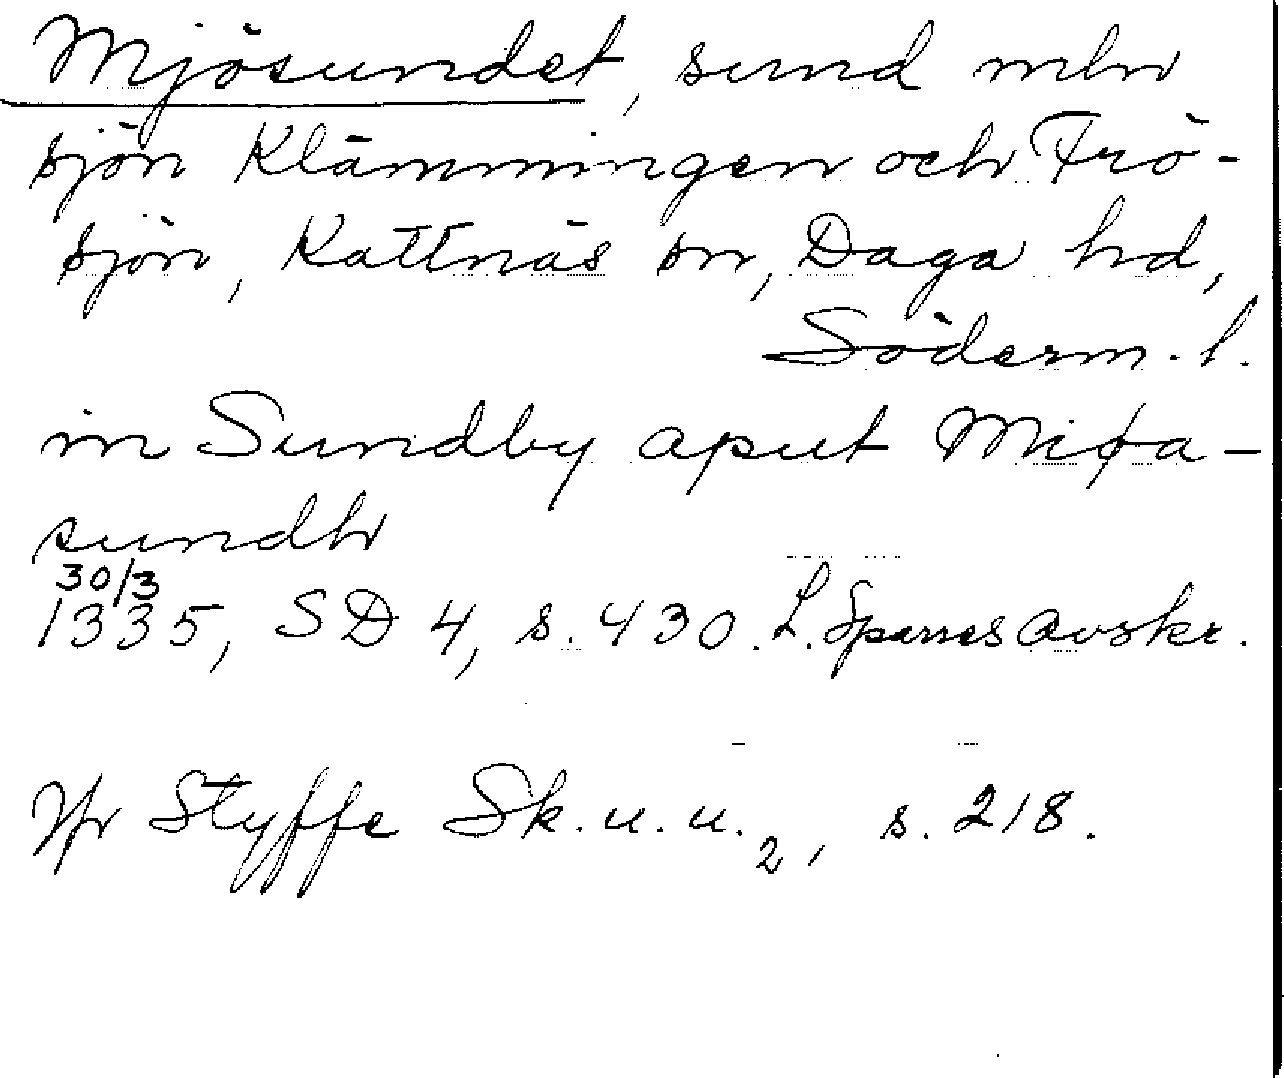 Mjösundet, sund mln
sjön Klämmingen och Frö-
sjön, Kattnäs sn, Daga hd,
Söderm. l.
in Sundby aput Miøa-
sundh
30/3
1335, SD 4, s. 430. L. Sparres avskr.
Jfr Styffe Sk. u. u. 2, s. 218.